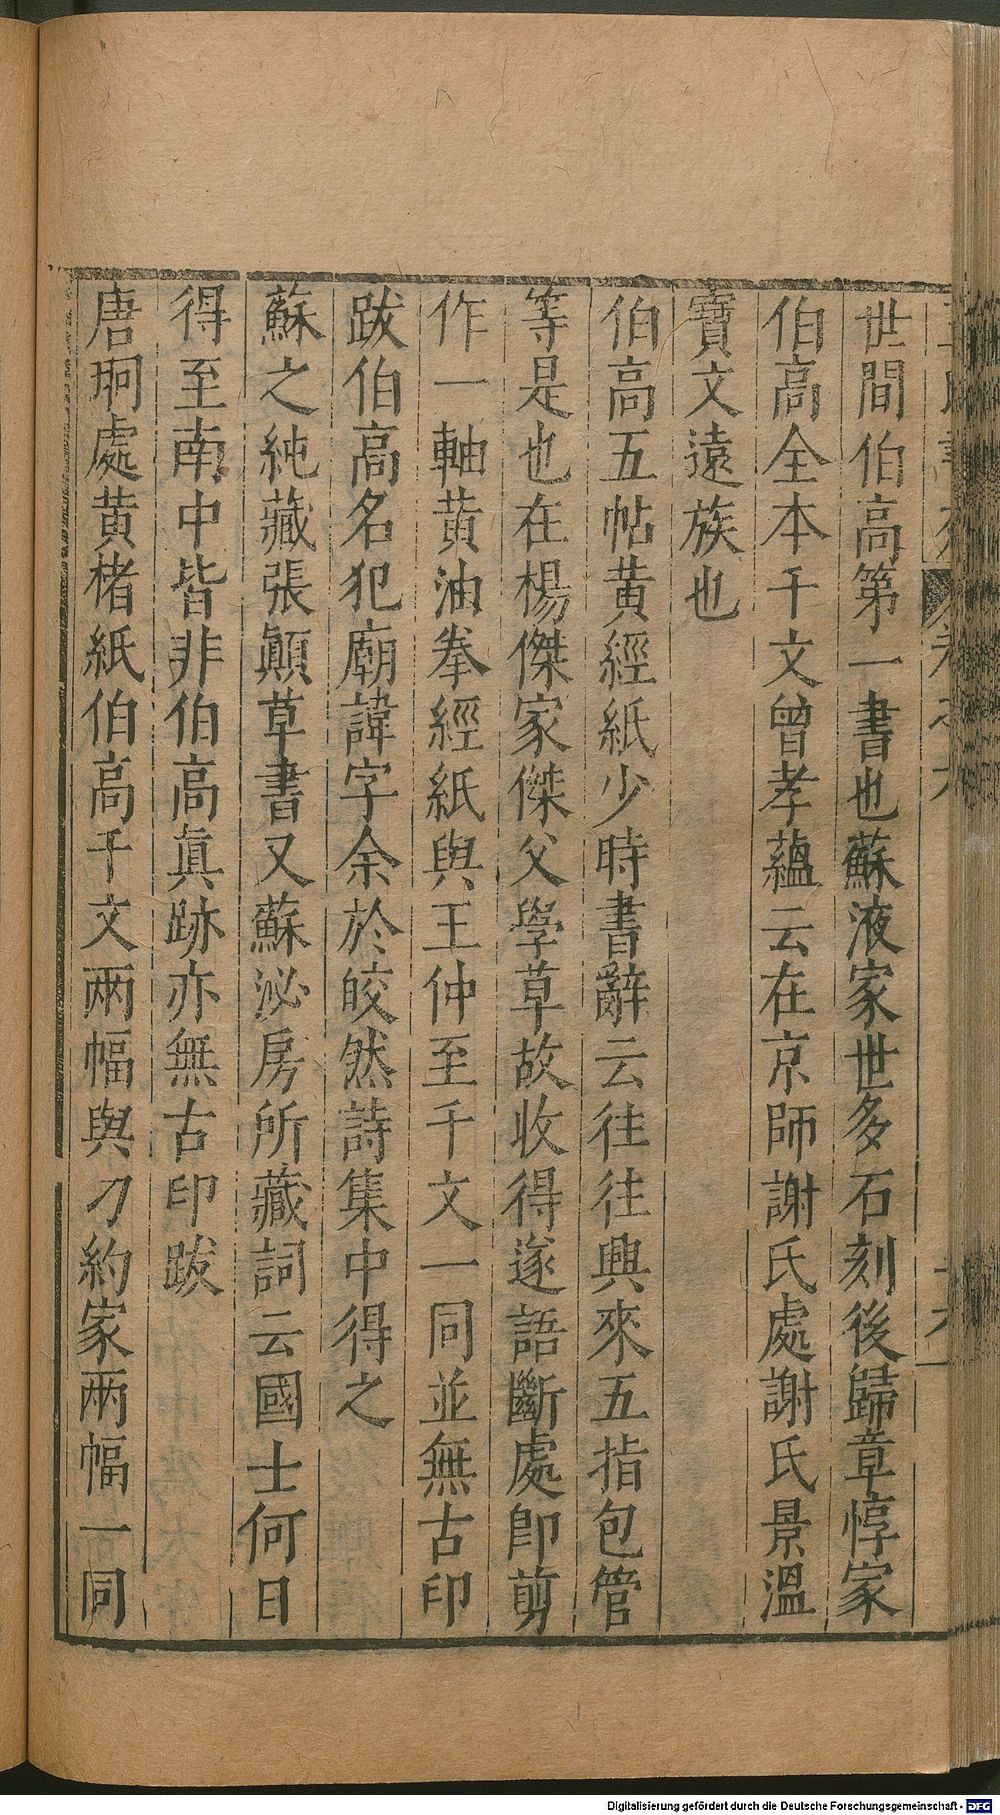 世間伯高第一書也蘇液家世多石刻後歸章惇家
伯高全本千文曾孝蘊云在京師謝氏處謝氏景溫
寶文遠族也
伯高五帖黃經紙少時書辭云往往興來五指包管
等是也在楊傑家傑父學草故收得遂語斷處卽剪
作一軸黃油拳經紙與王仲至千文一同並無古印
跋伯高名犯廟諱字余於皎然詩集中得之
蘇之純藏張顚草書又蘇泌房所藏詞云國士何日
得至南中皆非伯高眞跡亦無古印跋
唐坰處黃楮紙伯高千文兩幅與刁約家兩幅一同
Digitalisierung gefördert durch die Deutsche Forschungsgemeinschaft - DFG